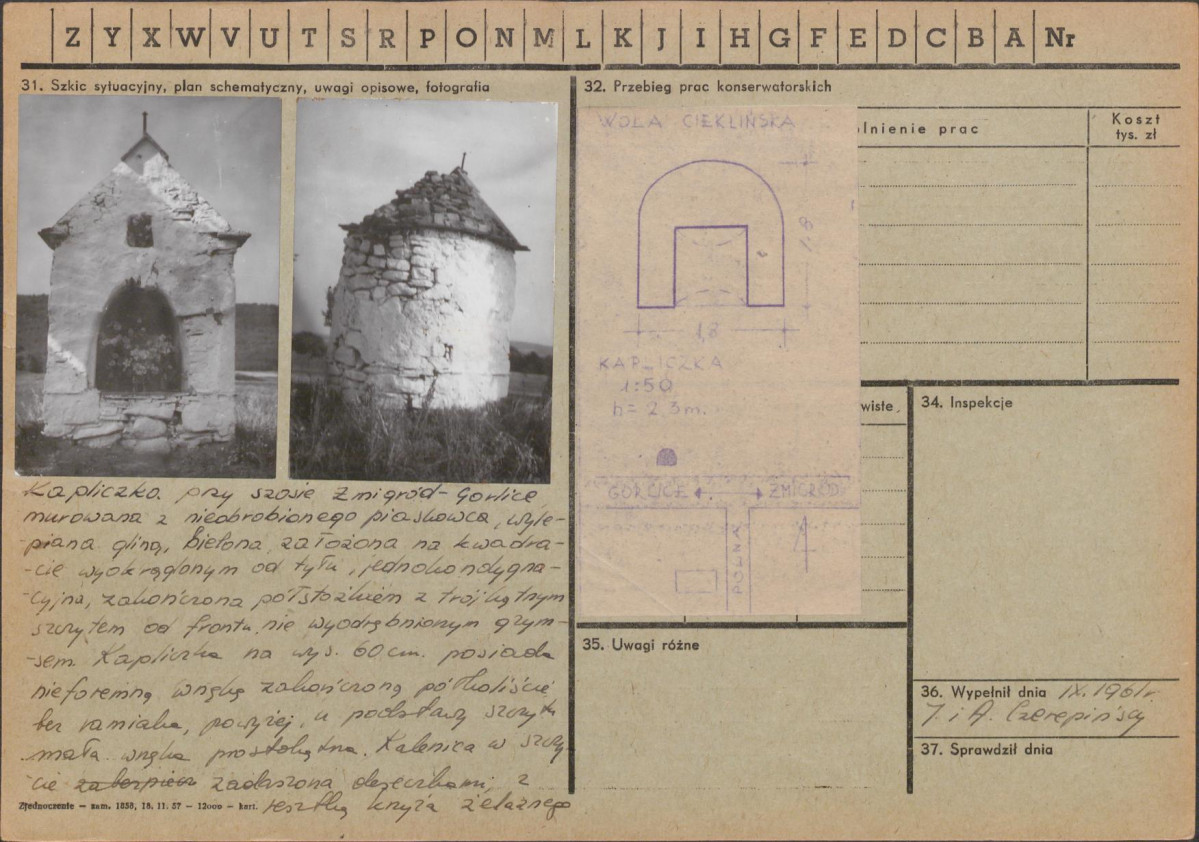 Z Y X W V U T S R P O N M L K J I H G F E D C B A Nr
31. Szkic sytuacyjny, plan schematyczny, uwagi opisowe, fotografia
Kapliczka przy szosie Żmigród-Gorlice
murowana z nieobrobionego piaskowca, wyle-
-piana gliną, bielona, założona na kwadra-
-cie wyokrąglonym od tyłu, jednokondygna-
-cyjna, zakończona półstożkiem z trójkątnym
szczytem od frontu, nie wyodrębnionym gzym-
-sem. Kapliczka na wys. 60 cm. posiada
nieforemną wnękę zakończoną półkoliście
bez ramiaka, powyżej, u podstawy szczytu
mała wnęka prostokątna. Kalenica w szczy-
cie zabezpiecz zadaszona deseczkami, z
resztką krzyża żelaznego
Zjednoczenie — zam. 1858, 18. 11. 57 — 12000 — kart.
32. Przebieg prac konserwatorskich
lnienie prac
Koszt
tys. zł
WOLA CIEKLIŃSKA
1,8
1,8
KAPLICZKA
1:50
h = 2,3 m.
GORLICE
ŻMIGRÓD
POLNA
wiste,
34. Inspekcje
35. Uwagi różne
36. Wypełnił dnia IX. 1961 r.
J. i A. Czerepińscy
37. Sprawdził dnia